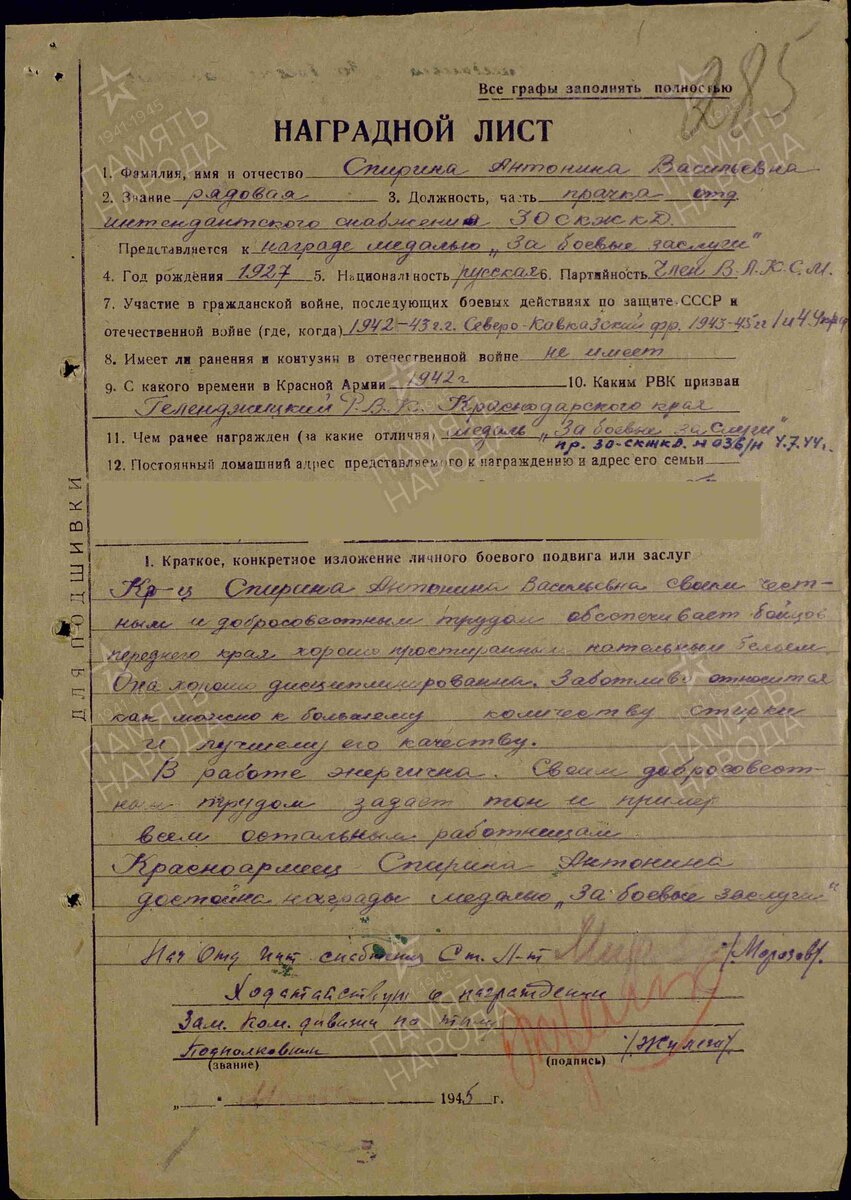 285
Все графы заполнять полностью
НАГРАДНОЙ ЛИСТ
1. Фамилия, имя и отчество Спирина Антонина Васильевна
2. Звание рядовая 3. Должность, часть прачка отд.
интендантского снабжения 30СКЖКД.
Представляется к награде медалью „За боевые заслуги"
4. Год рождения 1927 5. Национальность русская 6. Партийность Член В.Л.К.С.М.
7. Участие в гражданской войне, последующих боевых действиях по защите СССР и
отечественной войне (где, когда) 1942-43 г.г. Северо-Кавказский фр. 1943-45 гг 1 и 4 Укр.ф
8. Имеет ли ранения и контузии в отечественной войне не имеет
9. С какого времени в Красной Армии 1942 г 10. Каким РВК призван
Геленджицкий Р.В.К. Краснодарского края
11. Чем ранее награжден (за какие отличия) Медаль „За боевые заслуги"
пр. 30-СКЖКД. № 036/н 4.7.44г.
12. Постоянный домашний адрес представляемого к награждению и адрес его семьи
ДЛЯ ПОДШИВКИ
I. Краткое, конкретное изложение личного боевого подвига или заслуг
Кр-ц Спирина Антонина Васильевна своим чест-
ным и добросовестным трудом обеспечивает бойцов
переднего края хорошо простиранным нательным бельем.
Она хорошо дисциплинированна. Заботливо относится
как можно к большему количеству стирки
и лучшему его качеству.
В работе энергична. Своим добросовест-
ным трудом задает тон и пример
всем остальным работницам
Красноармеец Спирина Антонина
достойна награды медалью „За боевые заслуги"
Нач Отд Инт снабжения Ст. Л-т /Морозов/.
Ходатайствую о награждении
Зам. Ком. дивизии по тылу
Подполковник /Жулега/.
(звание) (подпись)
„ " 1945 г.
ПАМЯТЬ НАРОДА
1941-1945